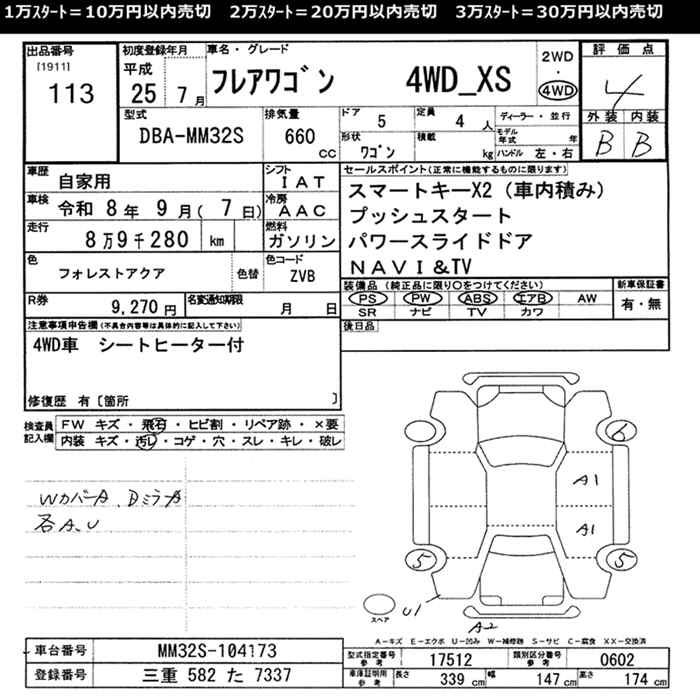 1万スタート＝10万円以内売切　2万スタート＝20万円以内売切　3万スタート＝30万円以内売切
出品番号
[1911]
113
初度登録年月
平成
25 7 月
車名・グレード
フレアワゴン 4WD_XS
2WD
・
4WD
評価点
4
外装 内装
B B
型式
DBA-MM32S
排気量
660 cc
ドア
5
定員
4 人
形状
ワゴン
積載
kg
ディーラー・並行
モデル年式 年
ハンドル 左・右
車歴
自家用
シフト
IAT
車検
令和 8 年 9 月( 7 日)
冷房
AAC
走行
8万9千280 km
燃料
ガソリン
色
フォレストアクア
色替
色コード
ZVB
R券
9,270 円
名変通知期限
月 日
セールスポイント(正常に機能するものに限ります)
スマートキーX2（車内積み）
プッシュスタート
パワースライドドア
NAVI&TV
装備品（純正品に限り○をつけてください）
PS PW ABS エアB AW
SR ナビ TV カワ
新車保証書
有・無
後日品
注意事項申告欄(不具合内容等は具体的に記入して下さい)
4WD車　シートヒーター付
修復歴 有〔箇所 〕
検査員記入欄
FW キズ・飛石・ヒビ割・リペア跡・×要
内装 キズ・汚し・コゲ・穴・スレ・キレ・破レ
WカバーA、DミラーA
各A、U
6
A1
A1
5
5
スペア
U1
A2
A-キズ E-エクボ U-凹み W-補修跡 S-サビ C-腐食 XX-交換済
車台番号
MM32S-104173
登録番号
三重 582 た 7337
型式指定番号
参考
17512
類別区分番号
参考
0602
車庫証明用
参考
長さ 339 cm
幅 147 cm
高さ 174 cm